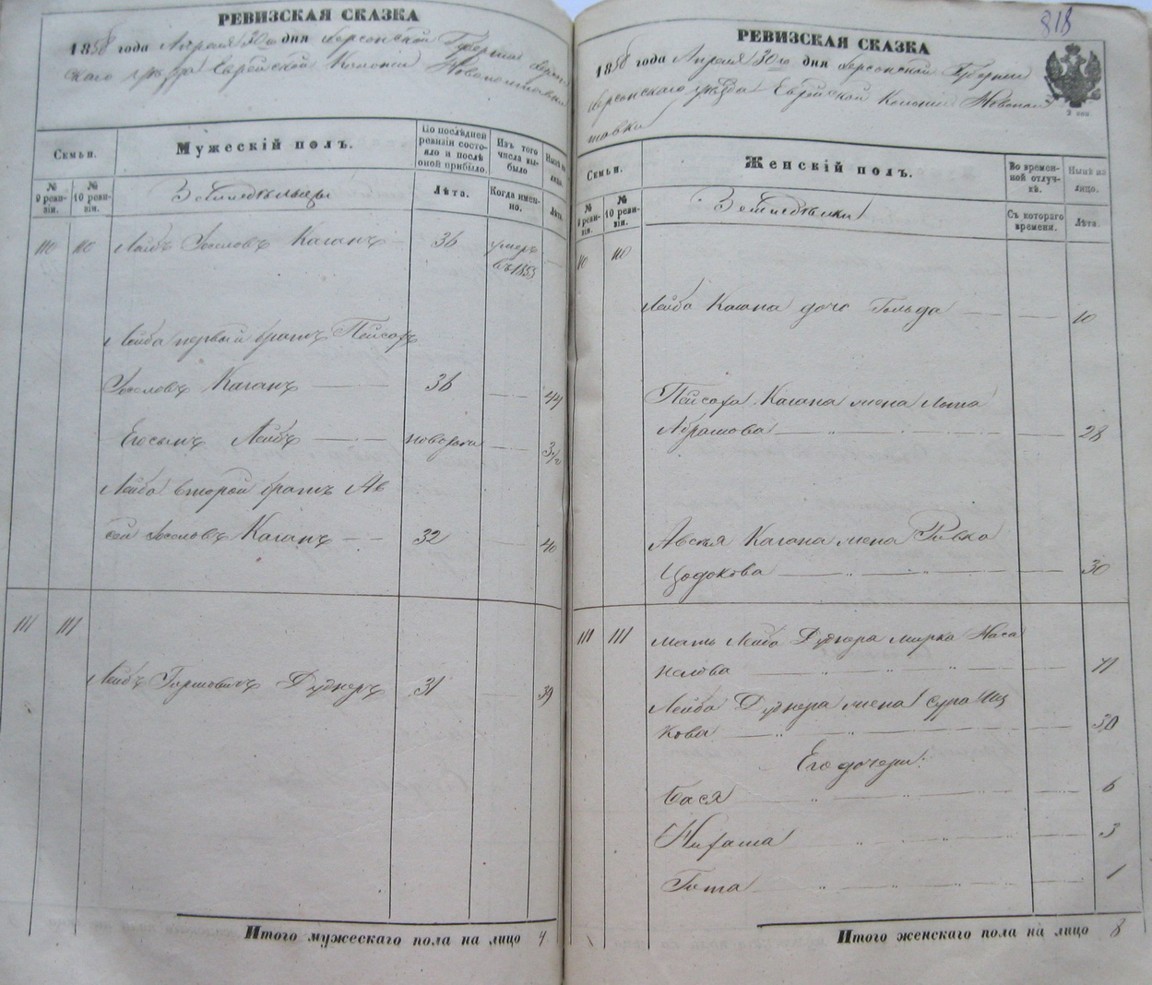 РЕВИЗСКАЯ СКАЗКА
1858 года Апреля 30го дня Херсонской Губернии Херсон
скаго уезда Еврейской Колонии Новополтавки
Семьи.
Мужескій полъ.
По послѣдней ревизіи состояло и послѣ оной прибыло.
Изъ того числа выбыло
Нынѣ на лицо.
№ 9 ревизіи.
№ 10 ревизіи.
Земледельцы
Лѣта.
Когда именно.
Лѣта.
110 110 Лейбъ Іоселовъ Каганъ 36 умеръ въ 1853
Лейба первый братъ Пейсахъ
Іоселовъ Каганъ 36 44
Его сынъ Лейбъ 3/12
Лейба второй братъ Ав
сей Іоселовъ Каганъ 32 40
111 111
Лейбъ Гершовичъ Дуднеръ 31 39
Итого мужескаго пола на лицо 4
818
РЕВИЗСКАЯ СКАЗКА
1858 года Апреля 30го дня Херсонской Губернии
Херсонскаго уезда Еврейской Колонии Новопол
тавки
Семьи.
Женскій полъ.
Во временной отлучкѣ.
Нынѣ на лицо.
№ 9 ревизіи.
№ 10 ревизіи.
Земледелки
Съ котораго времени.
Лѣта.
110 110
Лейба Кагана дочь Гольда 10
Пейсаха Кагана жена
Абрамова 28
Авсея Кагана жена Ривка
Цодокова 30
111 111 Мать Лейба Дуднера Мирка Наса
нелова 71
Лейба Дуднера жена Сура Иц
кова 30
Его дочери:
Бася 6
3
1
Итого женскаго пола на лицо 8